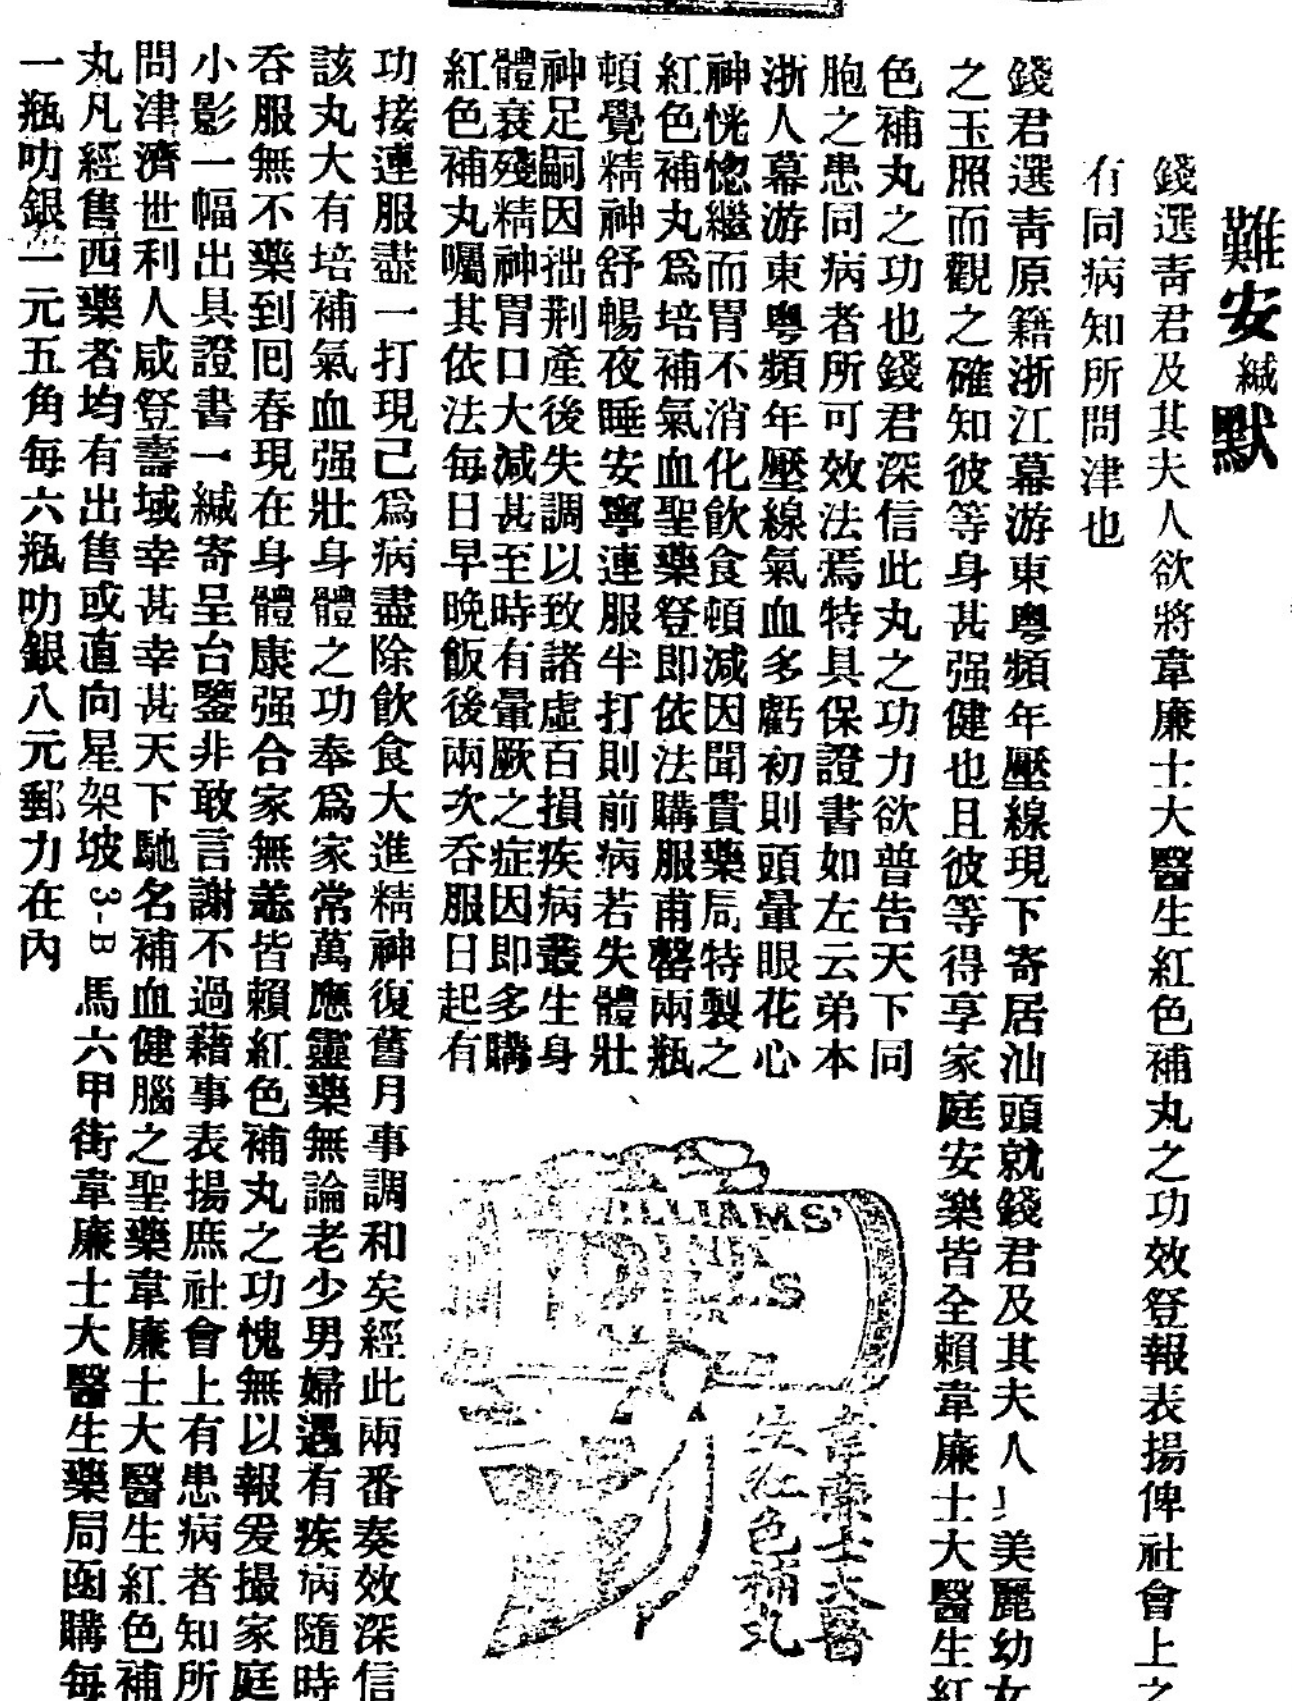 難安緘默
錢選青君及其夫人欲將韋廉士大醫生紅色補丸之功效登報表揚俾社會上之
有同病知所問津也
錢君選青原籍浙江幕游東粵頻年壓線現下寄居汕頭就錢君及其夫人 美麗幼女
之玉照而觀之確知彼等身甚强健也且彼等得享家庭安樂皆全賴韋廉士大醫生紅
色補丸之功也錢君深信此丸之功力欲普告天下同
胞之患同病者所可效法焉特具保證書如左云弟本
浙人幕游東粵頻年壓線氣血多虧初則頭暈眼花心
神恍惚繼而胃不消化飲食頓減因聞貴藥局特製之
紅色補丸爲培補氣血聖藥登即依法購服甫罄兩瓶
頓覺精神舒暢夜睡安寧連服半打則前病若失體壯
神足嗣因拙荆產後失調以致諸虛百損疾病叢生身
體衰殘精神胃口大減甚至時有暈厥之症因即多購
紅色補丸囑其依法每日早晚飯後兩次吞服日起有
功接連服盡一打現已爲病盡除飲食大進精神復舊月事調和矣經此兩番奏效深信
該丸大有培補氣血强壯身體之功奉爲家常萬應靈藥無論老少男婦遇有疾病隨時
吞服無不藥到回春現在身體康强合家無恙皆賴紅色補丸之功愧無以報爰撮家庭
小影一幅出具證書一緘寄呈台鑒非敢言謝不過藉事表揚庶社會上有患病者知所
問津濟世利人咸登壽域幸甚幸甚天下馳名補血健腦之聖藥韋廉士大醫生紅色補
丸凡經售西藥者均有出售或直向星架坡3-B馬六甲街韋廉士大醫生藥局函購每
一瓶叻銀一元五角每六瓶叻銀八元郵力在內
WILLIAMS'
PINK
PILLS
韋廉士大醫
生紅色補丸